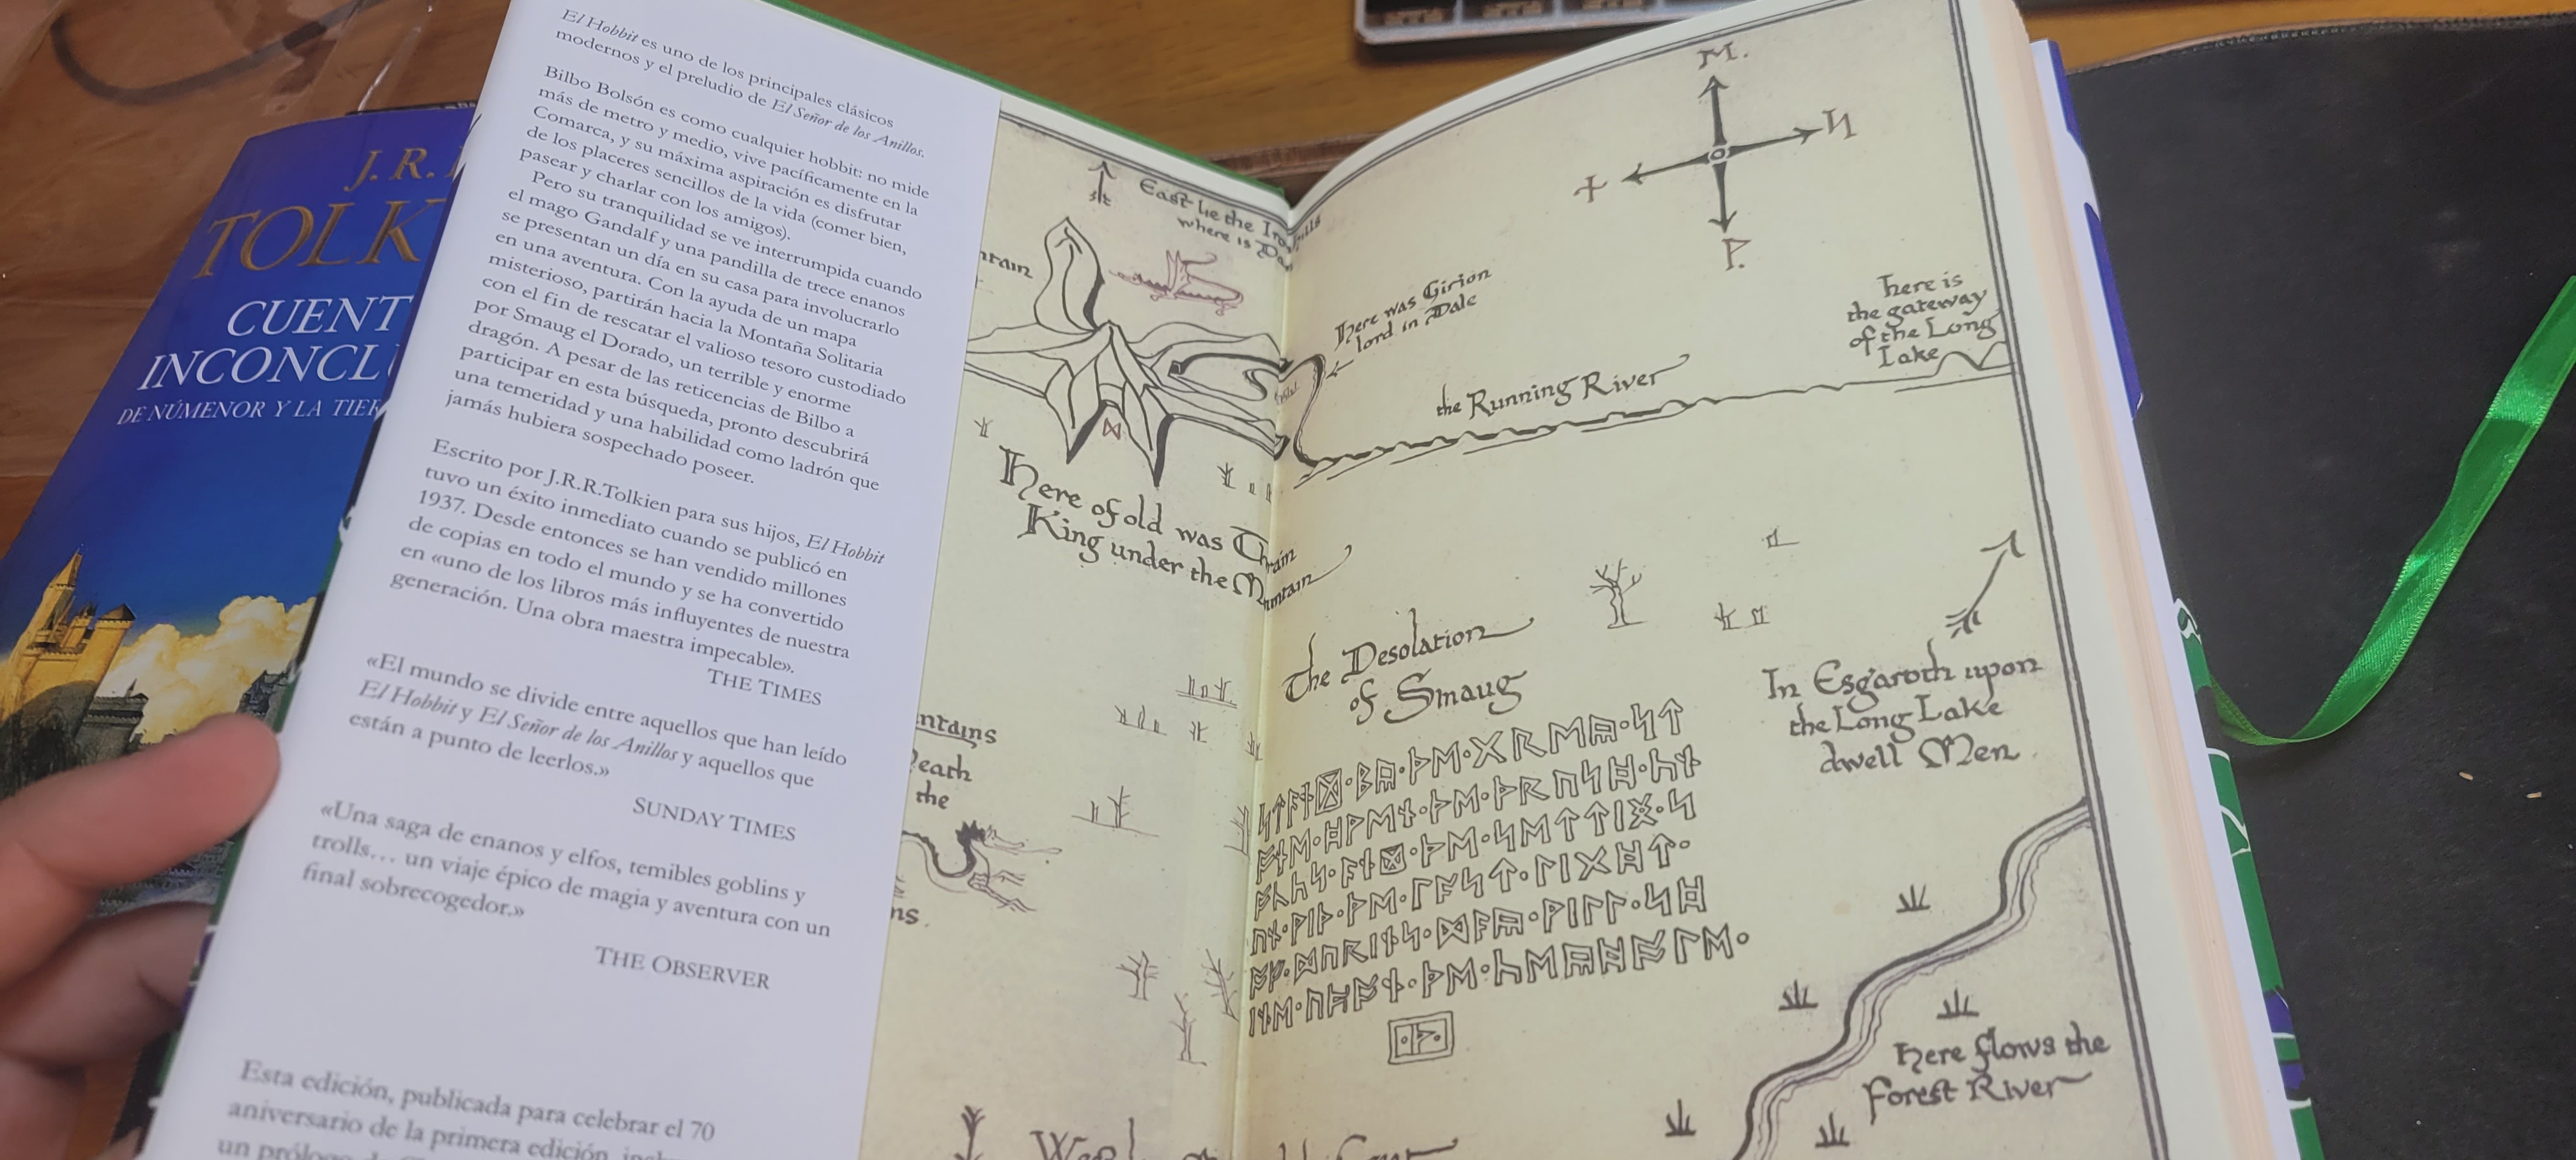 J.R.
TOLK
CUENT
INCONCL
DE NÚMENOR Y LA TIER
El Hobbit es uno de los principales clásicos
modernos y el preludio de El Señor de los Anillos.
Bilbo Bolsón es como cualquier hobbit: no mide
más de metro y medio, vive pacíficamente en la
Comarca, y su máxima aspiración es disfrutar
de los placeres sencillos de la vida (comer bien,
pasear y charlar con los amigos).
Pero su tranquilidad se ve interrumpida cuando
el mago Gandalf y una pandilla de trece enanos
se presentan un día en su casa para involucrarlo
en una aventura. Con la ayuda de un mapa
misterioso, partirán hacia la Montaña Solitaria
con el fin de rescatar el valioso tesoro custodiado
por Smaug el Dorado, un terrible y enorme
dragón. A pesar de las reticencias de Bilbo a
participar en esta búsqueda, pronto descubrirá
una temeridad y una habilidad como ladrón que
jamás hubiera sospechado poseer.
Escrito por J.R.R.Tolkien para sus hijos, El Hobbit
tuvo un éxito inmediato cuando se publicó en
1937. Desde entonces se han vendido millones
de copias en todo el mundo y se ha convertido
en «uno de los libros más influyentes de nuestra
generación. Una obra maestra impecable».
THE TIMES
«El mundo se divide entre aquellos que han leído
El Hobbit y El Señor de los Anillos y aquellos que
están a punto de leerlos.»
SUNDAY TIMES
«Una saga de enanos y elfos, temibles goblins y
trolls… un viaje épico de magia y aventura con un
final sobrecogedor.»
THE OBSERVER
Esta edición, publicada para celebrar el 70
aniversario de la primera edición,
un prólogo
East lie the Iron Hills
where is
ntain
Here of old was Thrain
King under the Mountain
ntains
the
ns.
ᛗ.
ᚻ
Here was Girion
lord in Dale
the Running River
here is
the gateway
of the Long
Lake
The Desolation
of Smaug
In Esgaroth upon
the Long Lake
dwell Men.
ᛋᛏᚪᚾᛞ᛫ᛒᚣ᛫ᚦᛖ᛫ᚷᚱᛖᚣ᛫ᛋᛏ
ᚩᚾᛖ᛫ᚻᚹᛖᚾ᛫ᚦᛖ᛫ᚦᚱᚢᛋᚻ᛫ᚳᚾ
ᚩᚳᚳᛋ᛫ᚪᚾᛞ᛫ᚦᛖ᛫ᛋᛖᛏᛏᛁᛝ᛫ᛋ
ᚢᚾ᛫ᚹᛁᚦ᛫ᚦᛖ᛫ᛚᚪᛋᛏ᛫ᛚᛁᚷᚻᛏ᛫
ᚩᚠ᛫ᛞᚢᚱᛁᚾᛋ᛫ᛞᚪᚣ᛫ᚹᛁᛚᛚ᛫ᛋᚻ
ᛁᚾᛖ᛫ᚢᚻᚩᚾ᛫ᚦᛖ᛫ᚳᛖᚣᚻᚩᛚᛖ᛫
᛫ᚦ᛫
here flows the
Forest River